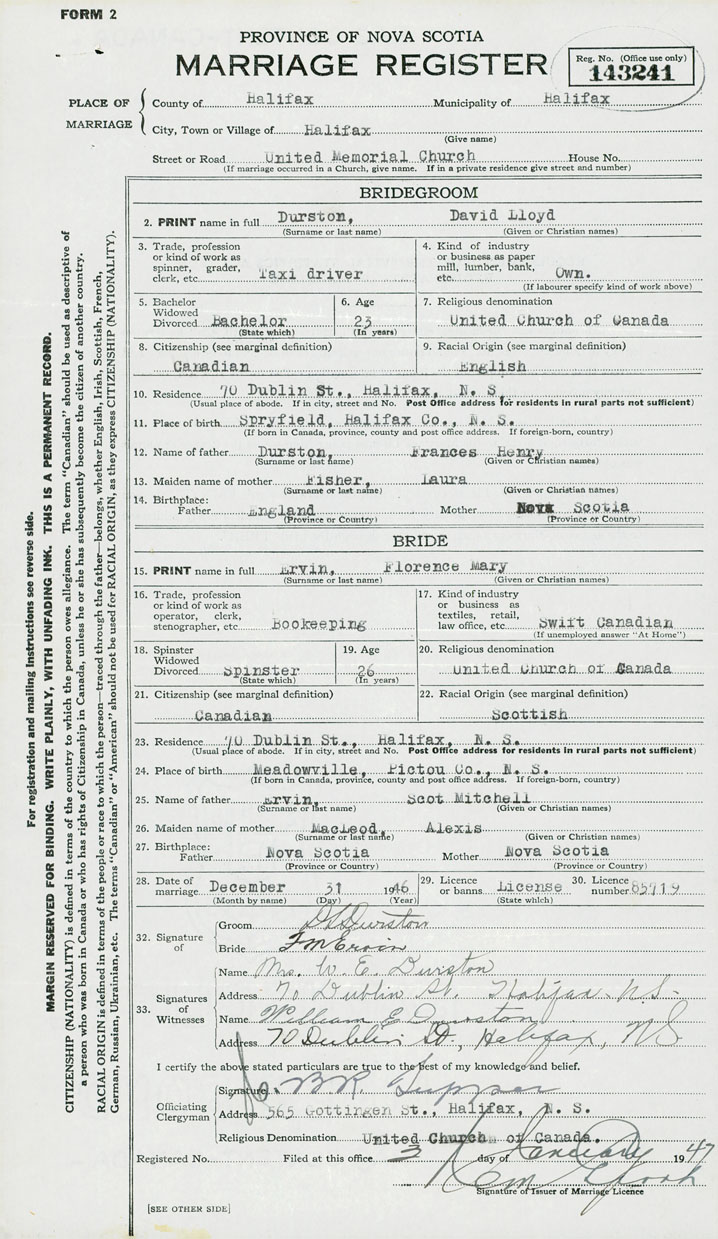 FORM 2
PROVINCE OF NOVA SCOTIA
MARRIAGE REGISTER
Reg. No. (Office use only)
143241
PLACE OF MARRIAGE
County of Halifax Municipality of Halifax
City, Town or Village of Halifax
(Give name)
Street or Road United Memorial Church House No.
(If marriage occurred in a Church, give name. If in a private residence give street and number)
BRIDEGROOM
2. PRINT name in full Durston, David Lloyd
(Surname or last name) (Given or Christian names)
3. Trade, profession or kind of work as spinner, grader, clerk, etc. Taxi driver
4. Kind of industry or business as paper mill, lumber, bank, etc. Own.
(If labourer specify kind of work above)
5. Bachelor Widowed Divorced Bachelor
(State which)
6. Age 23
(In years)
7. Religious denomination
United Church of Canada
8. Citizenship (see marginal definition)
Canadian
9. Racial Origin (see marginal definition)
English
10. Residence 70 Dublin St., Halifax, N. S.
(Usual place of abode. If in city, street and No. Post Office address for residents in rural parts not sufficient)
11. Place of birth Spryfield, Halifax Co., N. S.
(If born in Canada, province, county and post office address. If foreign-born, country)
12. Name of father Durston, Frances Henry
(Surname or last name) (Given or Christian names)
13. Maiden name of mother Fisher, Laura
(Surname or last name) (Given or Christian names)
14. Birthplace:
Father England Mother Nova Scotia
(Province or Country) (Province or Country)
BRIDE
15. PRINT name in full Ervin, Florence Mary
(Surname or last name) (Given or Christian names)
16. Trade, profession or kind of work as operator, clerk, stenographer, etc Bookeeping
17. Kind of industry or business as textiles, retail, law office, etc. Swift Canadian
(If unemployed answer "At Home")
18. Spinster Widowed Divorced Spinster
(State which)
19. Age 26
(In years)
20. Religious denomination
United Church of Canada
21. Citizenship (see marginal definition)
Canadian
22. Racial Origin (see marginal definition)
Scottish
23. Residence 70 Dublin St., Halifax, N. S.
(Usual place of abode. If in city, street and No. Post Office address for residents in rural parts not sufficient)
24. Place of birth Meadowville, Pictou Co., N. S.
(If born in Canada, province, county and post office address. If foreign-born, country)
25. Name of father Ervin, Scot Mitchell
(Surname or last name) (Given or Christian names)
26. Maiden name of mother MacLeod, Alexis
(Surname or last name) (Given or Christian names)
27. Birthplace:
Father Nova Scotia Mother Nova Scotia
(Province or Country) (Province or Country)
28. Date of marriage December 31 1946
(Month by name) (Day) (Year)
29. Licence or banns License
(State which)
30. Licence number
32. Signature of
Groom D L Durston
Bride F M Ervin
33. Signatures of Witnesses
Name Mrs. W. E. Durston
Address 70 Dublin St. Halifax N.S.
Name William E Durston
Address 70 Dublin St., Halifax, N.S.
I certify the above stated particulars are true to the best of my knowledge and belief.
Officiating Clergyman
Signature B R Tupper
Address 565 Gottingen St., Halifax, N. S.
Religious Denomination United Church of Canada.
Registered No. Filed at this office 3 day of January 1947
Signature of Issuer of Marriage Licence
[SEE OTHER SIDE]
For registration and mailing instructions see reverse side.
MARGIN RESERVED FOR BINDING. WRITE PLAINLY, WITH UNFADING INK. THIS IS A PERMANENT RECORD.
CITIZENSHIP (NATIONALITY) is defined in terms of the country to which the person owes allegiance. The term "Canadian" should be used as descriptive of
a person who was born in Canada or who has rights of Citizenship in Canada, unless he or she has subsequently become the citizen of another country.
RACIAL ORIGIN is defined in terms of the people or race to which the person—traced through the father—belongs, whether English, Irish, Scottish, French,
German, Russian, Ukrainian, etc. The terms "Canadian" or "American" should not be used for RACIAL ORIGIN, as they express CITIZENSHIP (NATIONALITY).